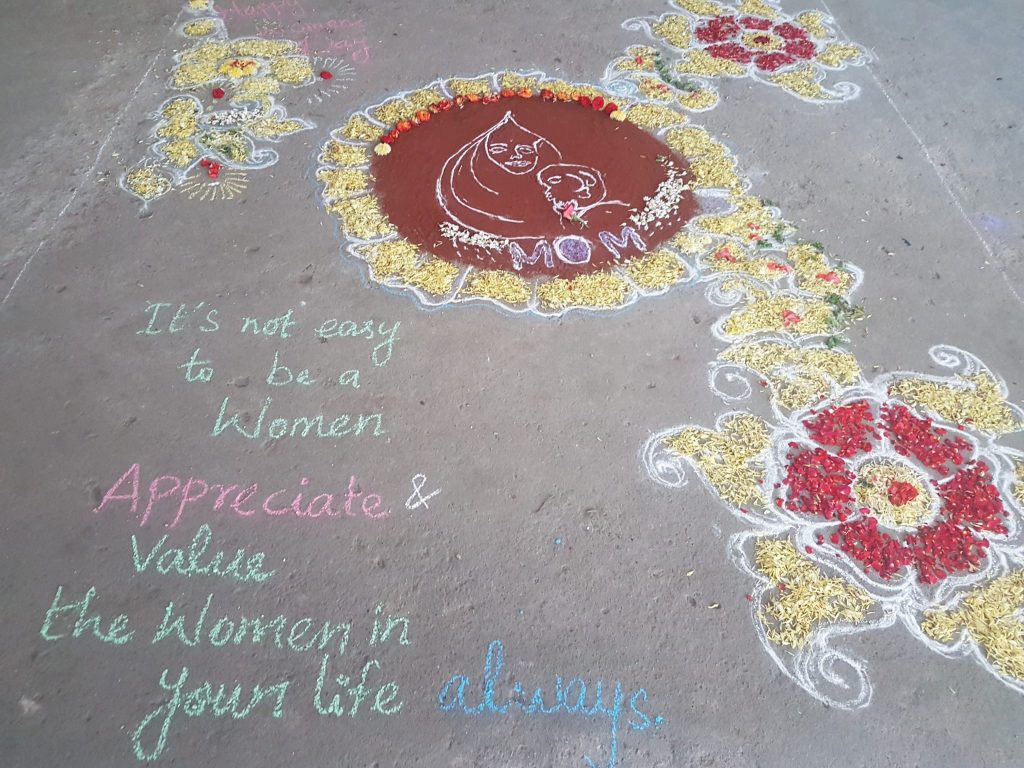 Happy
Women's
Day
MOM
It's not easy
to be a
Women.
Appreciate &
Value
the Women in
your life always.